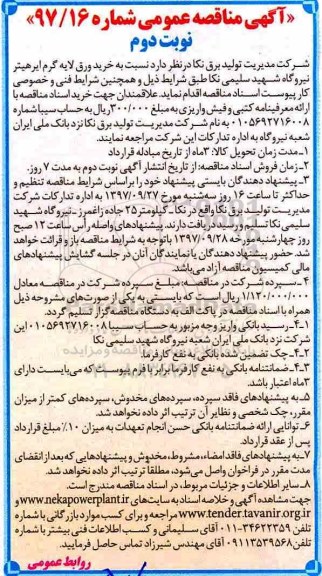 «آگهی مناقصه عمومی شماره ۹۷/۱۶»
نوبت دوم
شرکت مدیریت تولید برق نکا درنظر دارد نسبت به خرید ورق لایه گرم ایرهیتر
نیروگاه شهید سلیمی نکا طبق شرایط ذیل و همچنین شرایط فنی و خصوصی
کار پیوست اسناد مناقصه اقدام نماید. علاقمندان جهت خرید اسناد مناقصه با
ارائه معرفینامه کتبی و فیش واریزی به مبلغ ۳۰۰/۰۰۰ ریال به حساب سیبا شماره
۰۱۰۵۶۹۲۷۱۶۰۰۸ به نام شرکت مدیریت تولید برق نکا نزد بانک ملی ایران
شعبه نیروگاه به اداره تدارکات این شرکت مراجعه نمایند.
۱-مدت زمان تحویل کالا: ۳ماه از تاریخ مبادله قرارداد
۲-زمان فروش اسناد مناقصه: از تاریخ انتشار آگهی نوبت دوم به مدت ۷ روز.
۳-پیشنهاد دهندگان بایستی پیشنهاد خود را براساس شرایط مناقصه تنظیم و
حداکثر تا ساعت ۱۶ روز سه‌شنبه مورخ ۱۳۹۷/۰۹/۲۷ به اداره تدارکات شرکت
مدیریت تولید برق نکا واقع در نکا-کیلومتر ۲۵ جاده زاغمرز-نیروگاه شهید
سلیمی نکا تسلیم و رسید دریافت دارند. پیشنهادهای واصله رأس ساعت ۱۲ صبح
روز چهارشنبه مورخه ۱۳۹۷/۰۹/۲۸ باتوجه به شرایط مناقصه باز و قرائت خواهد
شد. حضور پیشنهاد دهندگان یا نمایندگان آنان در جلسه گشایش پیشنهادهای
مالی کمیسیون مناقصه آزاد می‌باشد.
۴-سپرده شرکت در مناقصه: مبلغ سپرده شرکت در مناقصه معادل
۱/۱۲۰/۰۰۰/۰۰۰ ریال است که بایستی به یکی از صورت‌های مشروحه ذیل
همراه با اسناد مناقصه در پاکت الف به دستگاه مناقصه‌گزار تسلیم گردد.
۴-۱-رسید بانکی واریز وجه مزبور به حساب سیبا ۰۱۰۵۶۹۲۷۱۶۰۰۸ این
شرکت نزد بانک ملی ایران شعبه نیروگاه شهید سلیمی نکا
۴-۲-چک تضمین شده بانکی به نفع کارفرما.
۴-۳-ضمانتنامه بانکی به نفع کارفرما برابر با فرم پیوست که می‌بایست دارای
۳ماه اعتبار باشد.
۵-به پیشنهادهای فاقد سپرده، سپرده‌های مخدوش، سپرده‌های کمتر از میزان
مقرر، چک شخصی و نظایر آن ترتیب اثر داده نخواهد شد.
۶-توانایی ارائه ضمانتنامه بانکی حسن انجام تعهدات به میزان ۱۰٪ مبلغ قرارداد
پس از عقد قرارداد.
۷-به پیشنهادهای فاقد امضاء، مشروط، مخدوش و پیشنهادهایی که بعد از انقضای
مدت مقرر در فراخوان واصل می‌شود، مطلقا ترتیب اثر داده نخواهد شد.
۸-سایر اطلاعات و جزئیات مربوط، در اسناد مناقصه مندرج است.
جهت مشاهده آگهی و خلاصه اسناد به سایت‌های www.nekapowerplant.ir و
www.tender.tavanir.org.ir مراجعه و برای کسب موارد بازرگانی با شماره
تلفن ۳۴۶۲۲۳۵۹-۰۱۱ آقای سلیمانی و کسب اطلاعات فنی بیشتر با شماره
تلفن ۰۹۱۱۳۵۳۹۵۶۸ آقای مهندس شیرزاد تماس حاصل فرمایید.
روابط عمومی